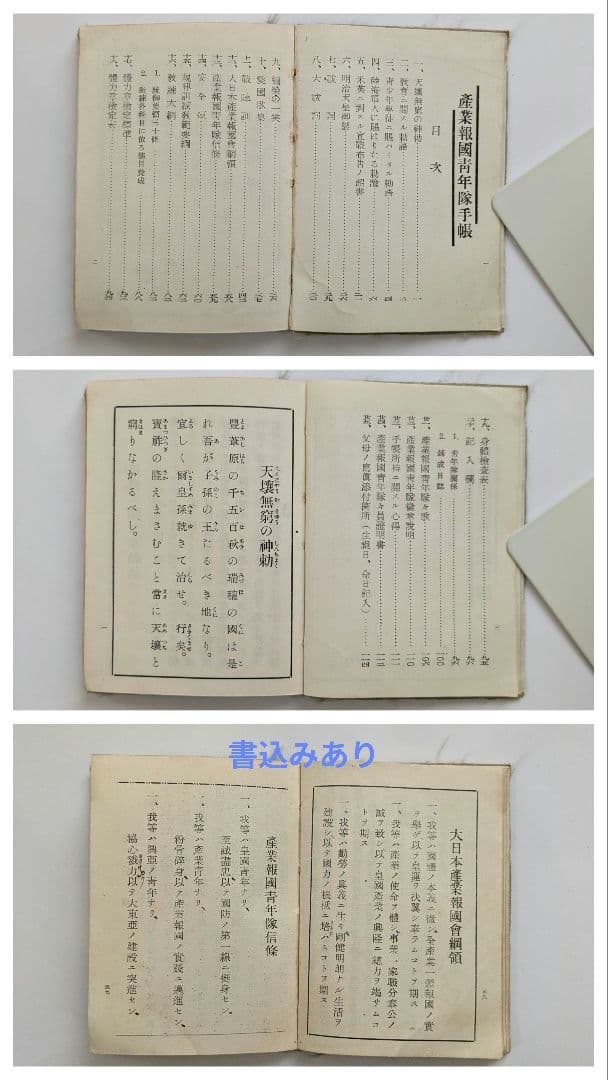 產業報國靑年隊手帳
目次
一、天壤無窮の神勅
二、敎育ニ關スル勅語
三、靑少年學徒ニ賜ハリタル勅語
四、陸海軍人に賜はりたる勅諭
五、米英ニ對スル宣戰布吿ノ詔書
六、明治天皇御製
七、誠詞
八、大祓詞
十、愛國歌集
十一、戰陣訓
十二、大日本產業報國會綱領
十三、產業報國靑年隊信條
十四、安全訓
十五、規律訓練敎範要綱
十六、敎練大綱
十七、體力章檢定標準
十八、體力章檢定表
十九、身體檢査表
二十、記入欄
1. 靑年隊關係
2. 鍊成日誌
產業報國靑年隊々歌
產業報國靑年隊徽章說明
手帳所持ニ關スル心得
產業報國靑年隊々員證明書
父母ノ寫眞添付箇所(生誕日、命日記入)
天壤無窮の神勅
豐葦原の千五百秋の瑞穗の國は是
れ吾が子孫の王たるべき地なり。
宜しく爾皇孫就きて治せ。行矣。
寶祚の隆えまさむこと當に天壤と
窮りなかるべし。
書込みあり
大日本產業報國會綱領
一、我等ハ國體ノ本義ニ徹シ全產業一體報國ノ實
ヲ擧ゲ以テ皇運ヲ扶翼シ奉ラムコトヲ期ス
一、我等ハ產業ノ使命ヲ體シ事業一家職分奉公ノ
誠ヲ致シ以テ皇國產業ノ興隆ニ總力ヲ竭サムコ
トヲ期ス
一、我等ハ勤勞ノ眞義ニ生キ剛健明朗ナル生活ヲ
建設シ以テ國力ノ根柢ニ培ハムコトヲ期ス
產業報國靑年隊信條
一、我等ハ皇國靑年ナリ、
至誠盡忠以テ國防ノ第一線ニ挺身セン、
一、我等ハ產業靑年ナリ、
粉骨碎身以テ產業報國ノ實踐ニ邁進セン、
一、我等ハ興亞ノ靑年ナリ、
協心戮力以テ大東亞ノ建設ニ突進セン、